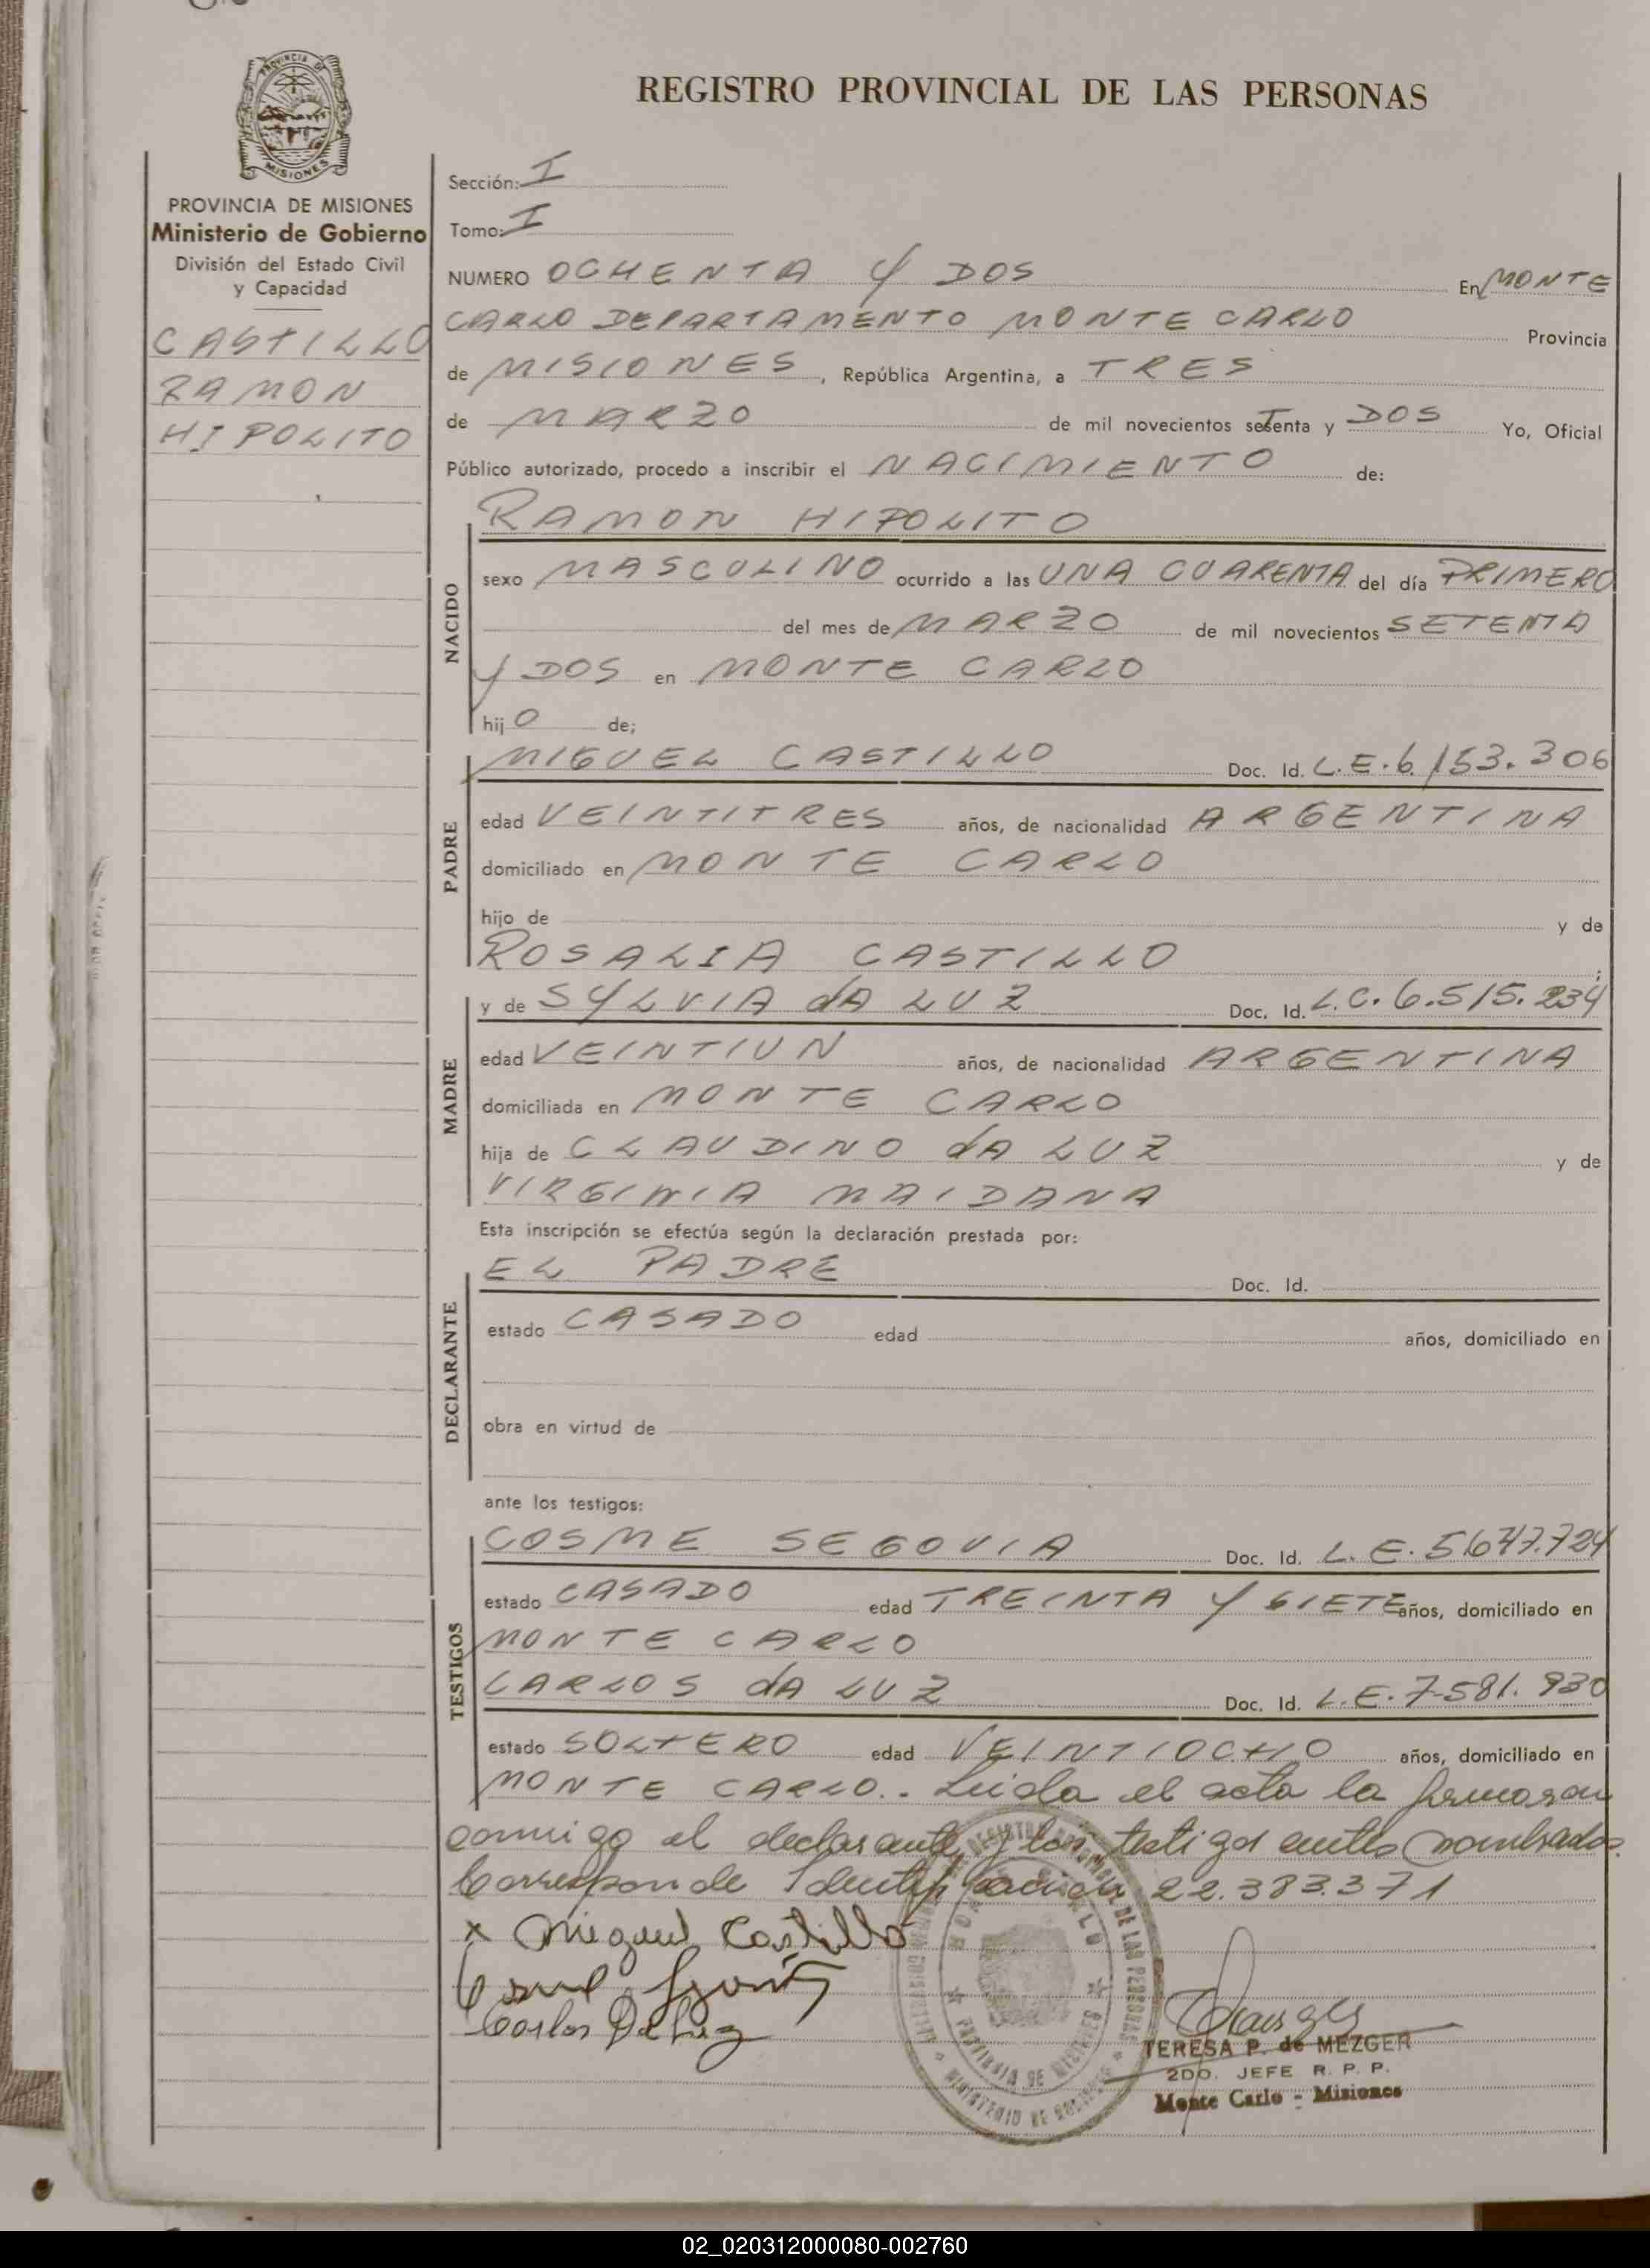 REGISTRO PROVINCIAL DE LAS PERSONAS
PROVINCIA DE
MISIONES
PROVINCIA DE MISIONES
Ministerio de Gobierno
División del Estado Civil
y Capacidad
CASTILLO
RAMON
HIPOLITO
Sección: I
Tomo: I
NUMERO OCHENTA Y DOS En MONTE
CARLO DEPARTAMENTO MONTE CARLO Provincia
de MISIONES, República Argentina, a TRES
de MARZO de mil novecientos setenta y DOS Yo, Oficial
Público autorizado, procedo a inscribir el NACIMIENTO de:
NACIDO
RAMON HIPOLITO
sexo MASCULINO ocurrido a las UNA CUARENTA del día PRIMERO
del mes de MARZO de mil novecientos SETENTA
Y DOS en MONTE CARLO
hijO de;
PADRE
MIGUEL CASTILLO Doc. Id. L.E. 6.153.306
edad VEINTITRES años, de nacionalidad ARGENTINA
domiciliado en MONTE CARLO
hijo de y de
ROSALIA CASTILLO ;
MADRE
y de SYLVIA dA LUZ Doc. Id. L.C. 6.515.234
edad VEINTIUN años, de nacionalidad ARGENTINA
domiciliada en MONTE CARLO
hija de CLAUDINO dA LUZ y de
VIRGINIA MAIDANA
Esta inscripción se efectúa según la declaración prestada por:
DECLARANTE
EL PADRE Doc. Id.
estado CASADO edad años, domiciliado en
obra en virtud de
ante los testigos:
TESTIGOS
COSME SEGOVIA Doc. Id. L.E. 5.647.724
estado CASADO edad TREINTA Y SIETE años, domiciliado en
MONTE CARLO
CARLOS dA LUZ Doc. Id. L.E. 7.581.930
estado SOLTERO edad VEINTIOCHO años, domiciliado en
MONTE CARLO.- Leida el acta la firmaron
conmigo el declarante y los testigos antes nombrados.
Corresponde Identificación 22.383.371
x Miguel Castillo
Carlos Da Luz
TERESA P. de MEZGER
2DO. JEFE R. P. P.
Monte Carlo - Misiones
02_020312000080-002760